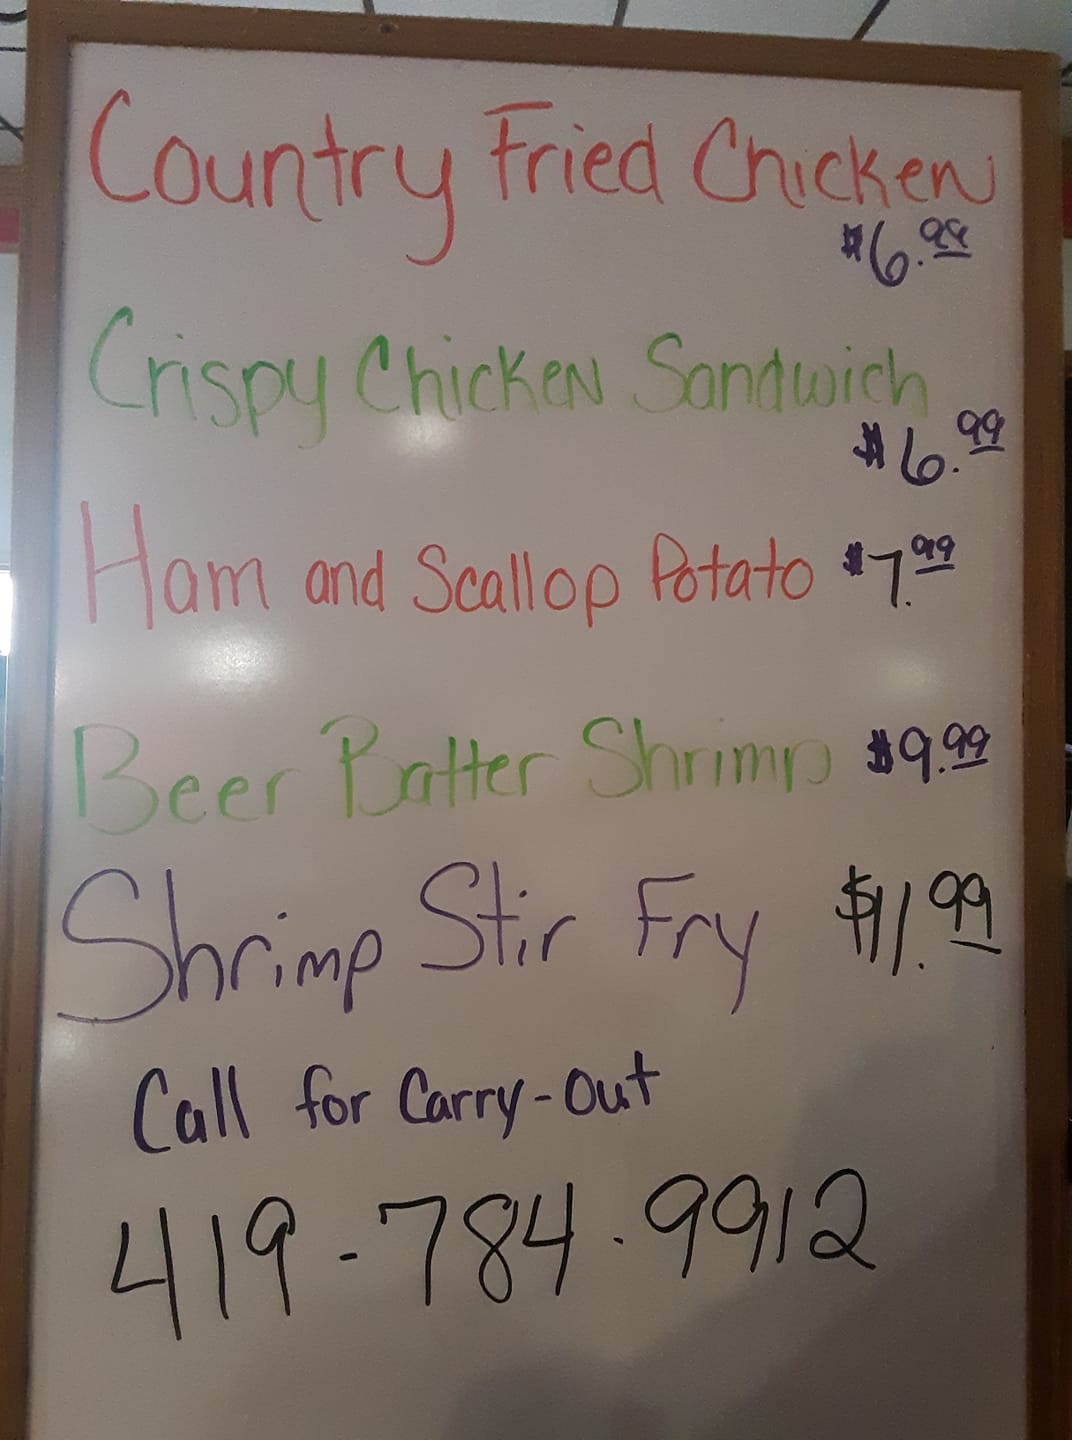 Country Fried Chicken
$6.99
Crispy Chicken Sandwich
$6.99
Ham and Scallop Potato $7.99
Beer Batter Shrimp $9.99
Shrimp Stir Fry $11.99
Call for Carry-Out
419-784-9912